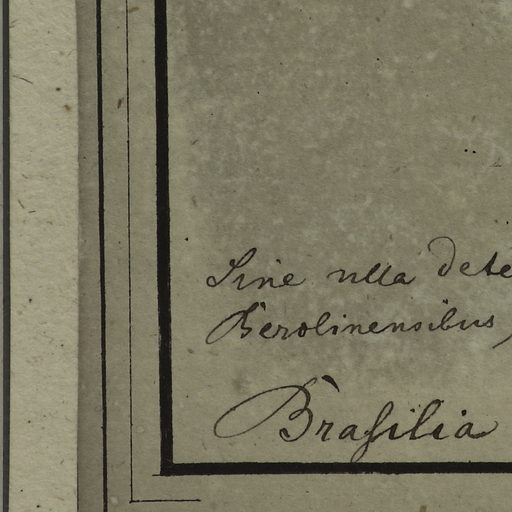 Sine ulla dete
Berolinensibus,
Braſilia